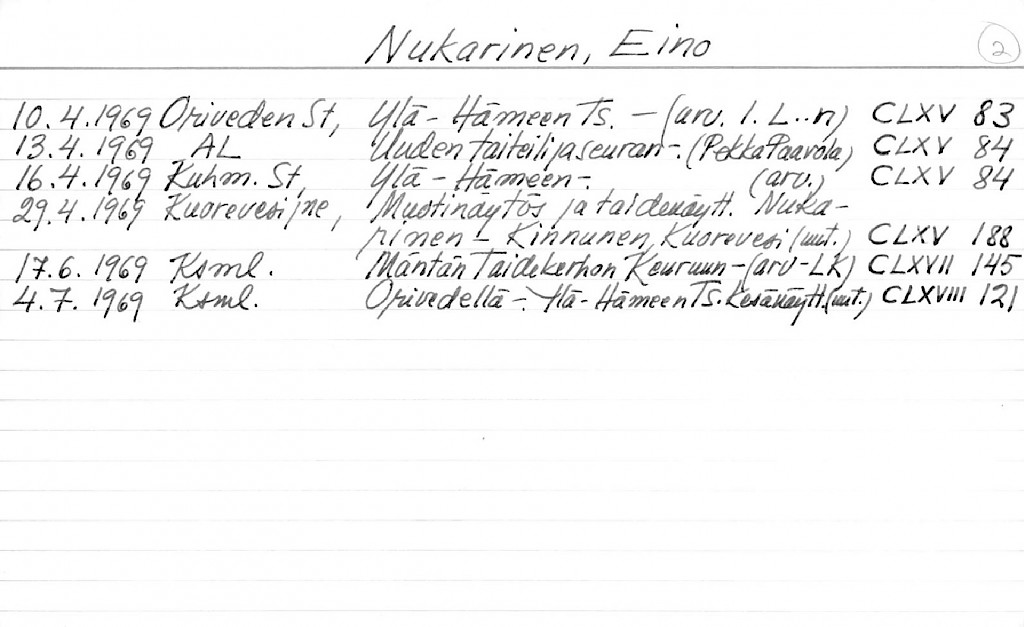 Nukarinen, Eino 2
10.4.1969 Oriveden St, Ylä-Hämeen Ts. - (arv. I. L..n) CLXV 83
13.4.1969 AL Uuden taiteilijaseuran -. (Pekka Paavola) CLXV 84
16.4.1969 Kuhm. St, Ylä-Hämeen -. (arv.) CLXV 84
29.4.1969 Kuorevesi jne, Muotinäytös ja taidenäytt. Nuka-
rinen - Kinnunen, Kuorevesi (uut.) CLXV 188
17.6.1969 Ksml. Mäntän Taidekerhon Keuruun - (arv - LK) CLXVII 145
4.7.1969 Ksml. Orivedellä -. Ylä-Hämeen Ts. Kesänäytt. (uut.) CLXVIII 121